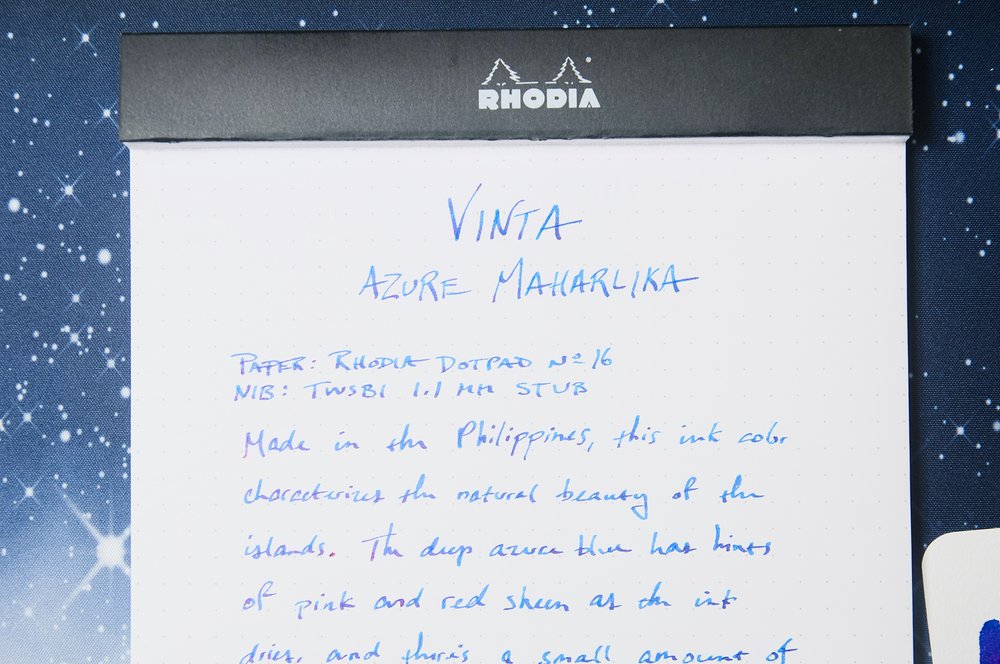 RHODIA
VINTA
AZURE MAHARLIKA
PAPER: RHODIA DOTPAD Nº 16
NIB: TWSBI 1.1 MM STUB
Made in the Philippines, this ink color
characterizes the natural beauty of the
islands. The deep azure blue has hints
of pink and red sheen as the ink
dries, and there's a small amount of